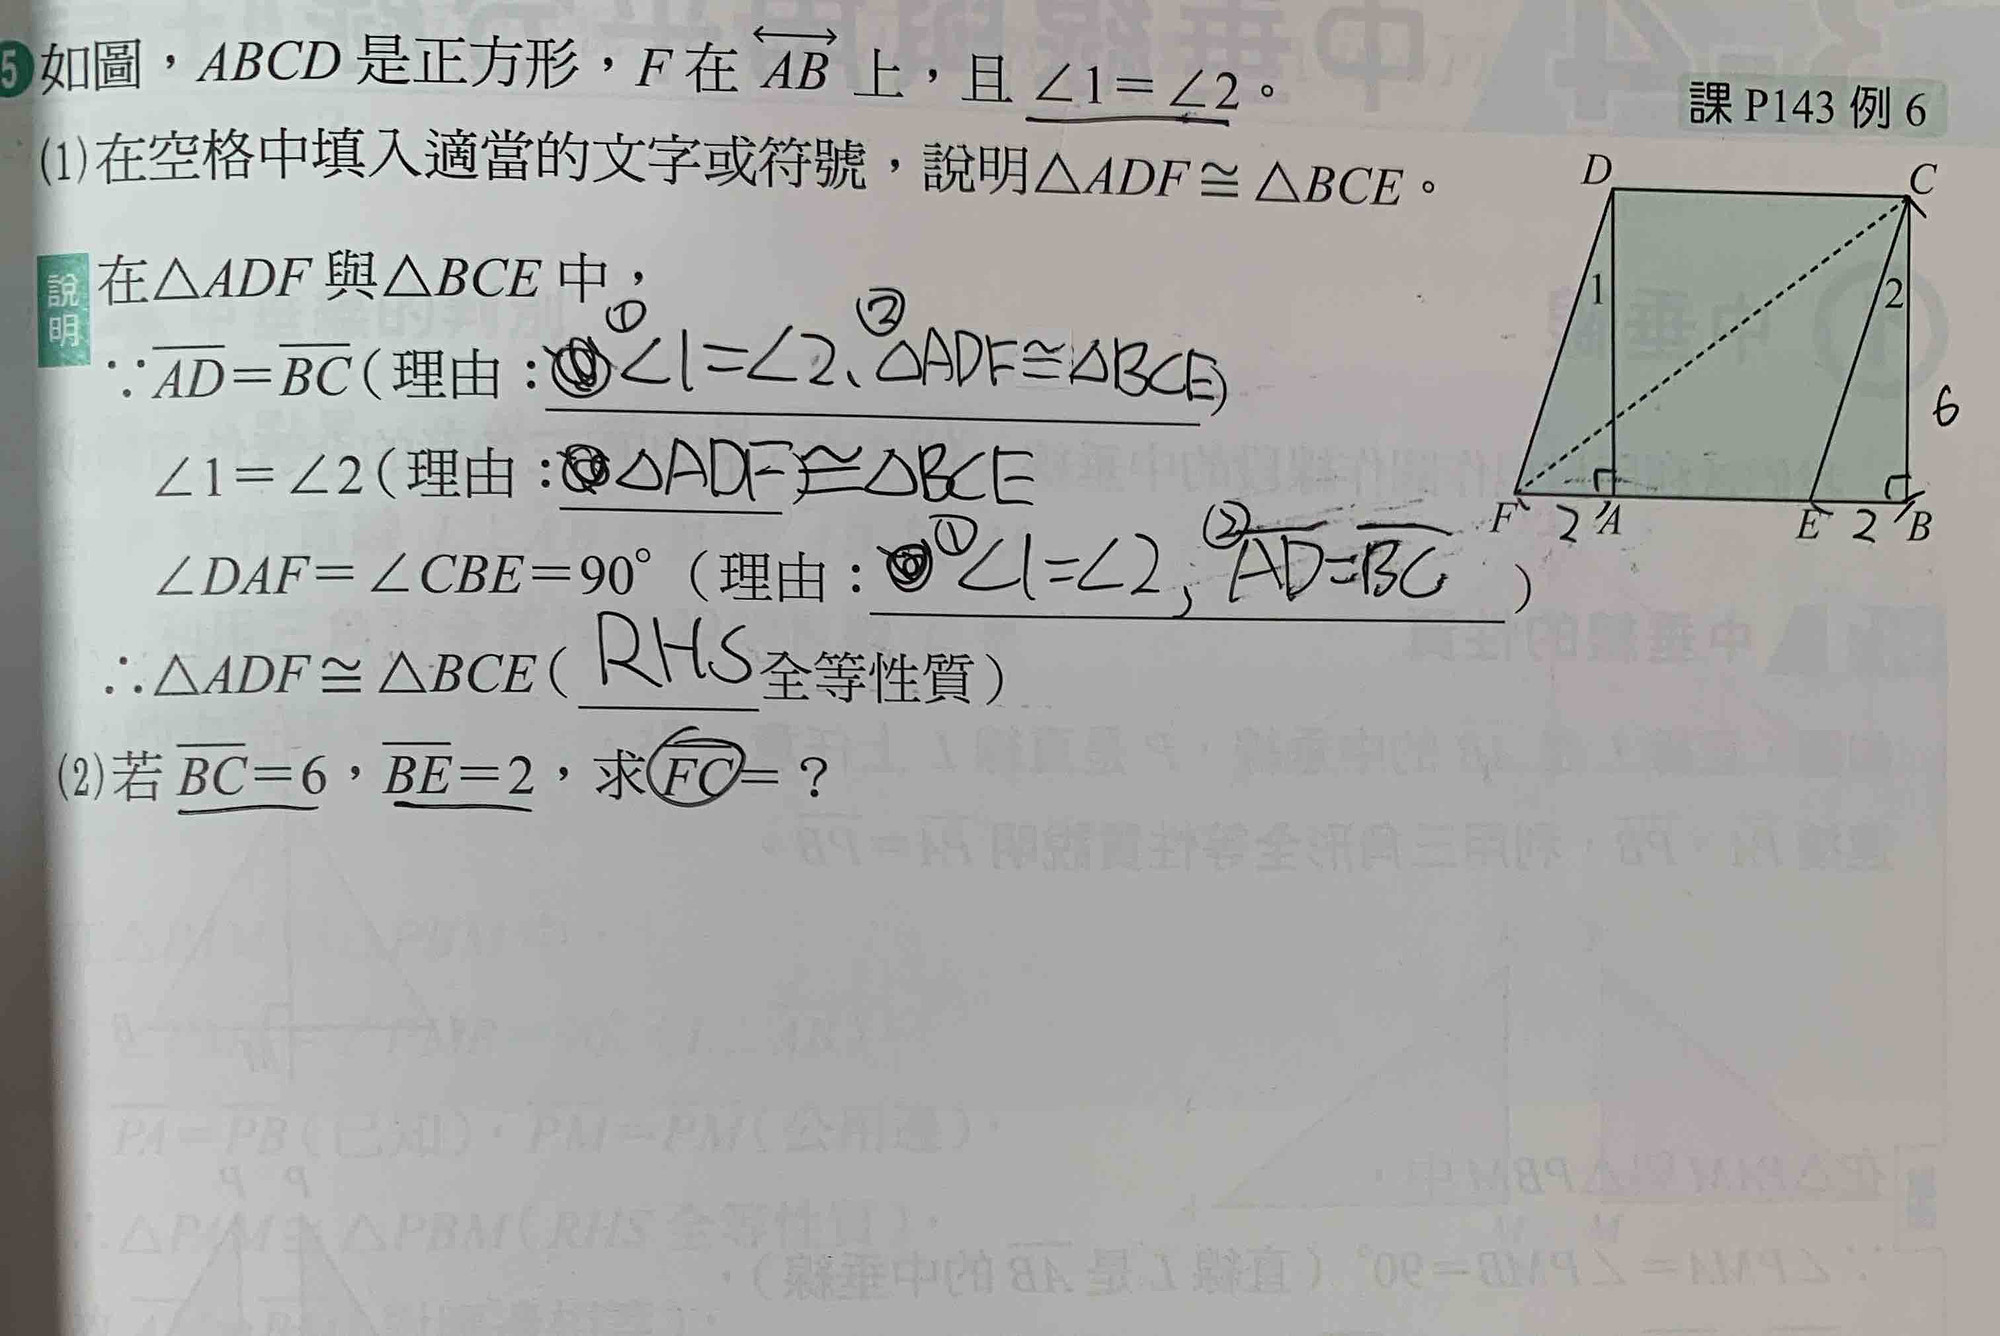 5 如圖，ABCD 是正方形，F 在 AB 上，且 ∠1＝∠2。
課 P143 例 6
(1)在空格中填入適當的文字或符號，說明△ADF≅△BCE。
D C
1 2
6
F 2 A E 2 B
說明 在△ADF 與△BCE 中，
∵AD＝BC(理由：①∠1=∠2、②△ADF≅△BCE)
∠1＝∠2(理由：△ADF)≅△BCE
∠DAF＝∠CBE＝90°（理由：①∠1=∠2, ②AD=BC）
∴△ADF≅△BCE( RHS 全等性質）
(2)若 BC＝6，BE＝2，求 FC＝？